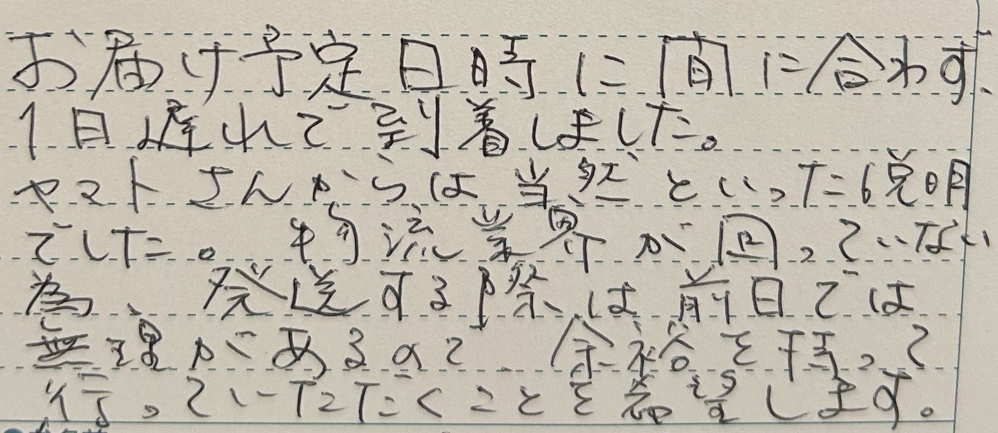 お届け予定日時に間に合わず、
1日遅れで到着しました。
ヤマトさんからは当然といった説明
でした。物流業界が回っていない
為、発送する際は前日では
無理があるので 余裕を持って
行っていただくことを希望します。